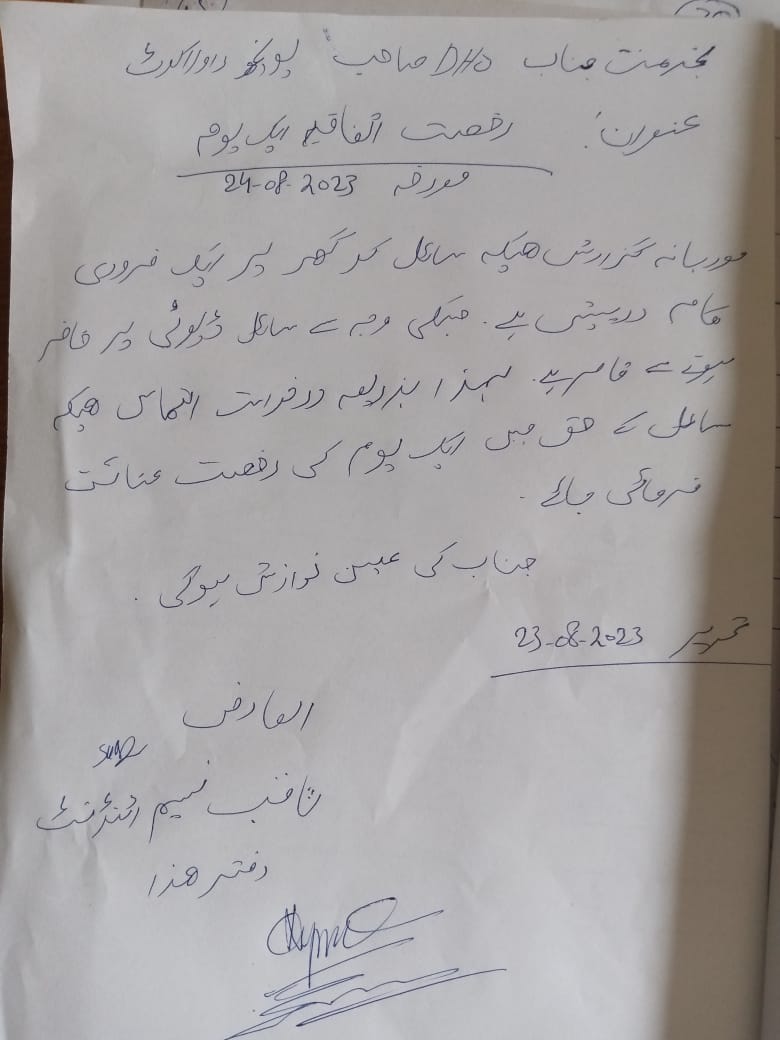 بخدمت جناب DHO صاحب پونچھ راولاکوٹ
عنوان: رخصت اتفاقیہ ایک یوم
مورخہ 24-08-2023
مودبانہ گزارش ھیکہ سائل کو گھر پر ایک ضروری
کام درپیش ہے۔ جسکی وجہ سے سائل ڈیوٹی پر حاضر
ہونے سے قاصر ہے۔ لہذا بذریعہ درخواست التماس ھیکہ
سائل کے حق میں ایک یوم کی رخصت عنائت
فرمائی جائے۔
جناب کی عین نوازش ہوگی۔
تحریر 23-08-2023
العارض
ثاقب نسیم اٹنڈنٹ
دفتر ھذا